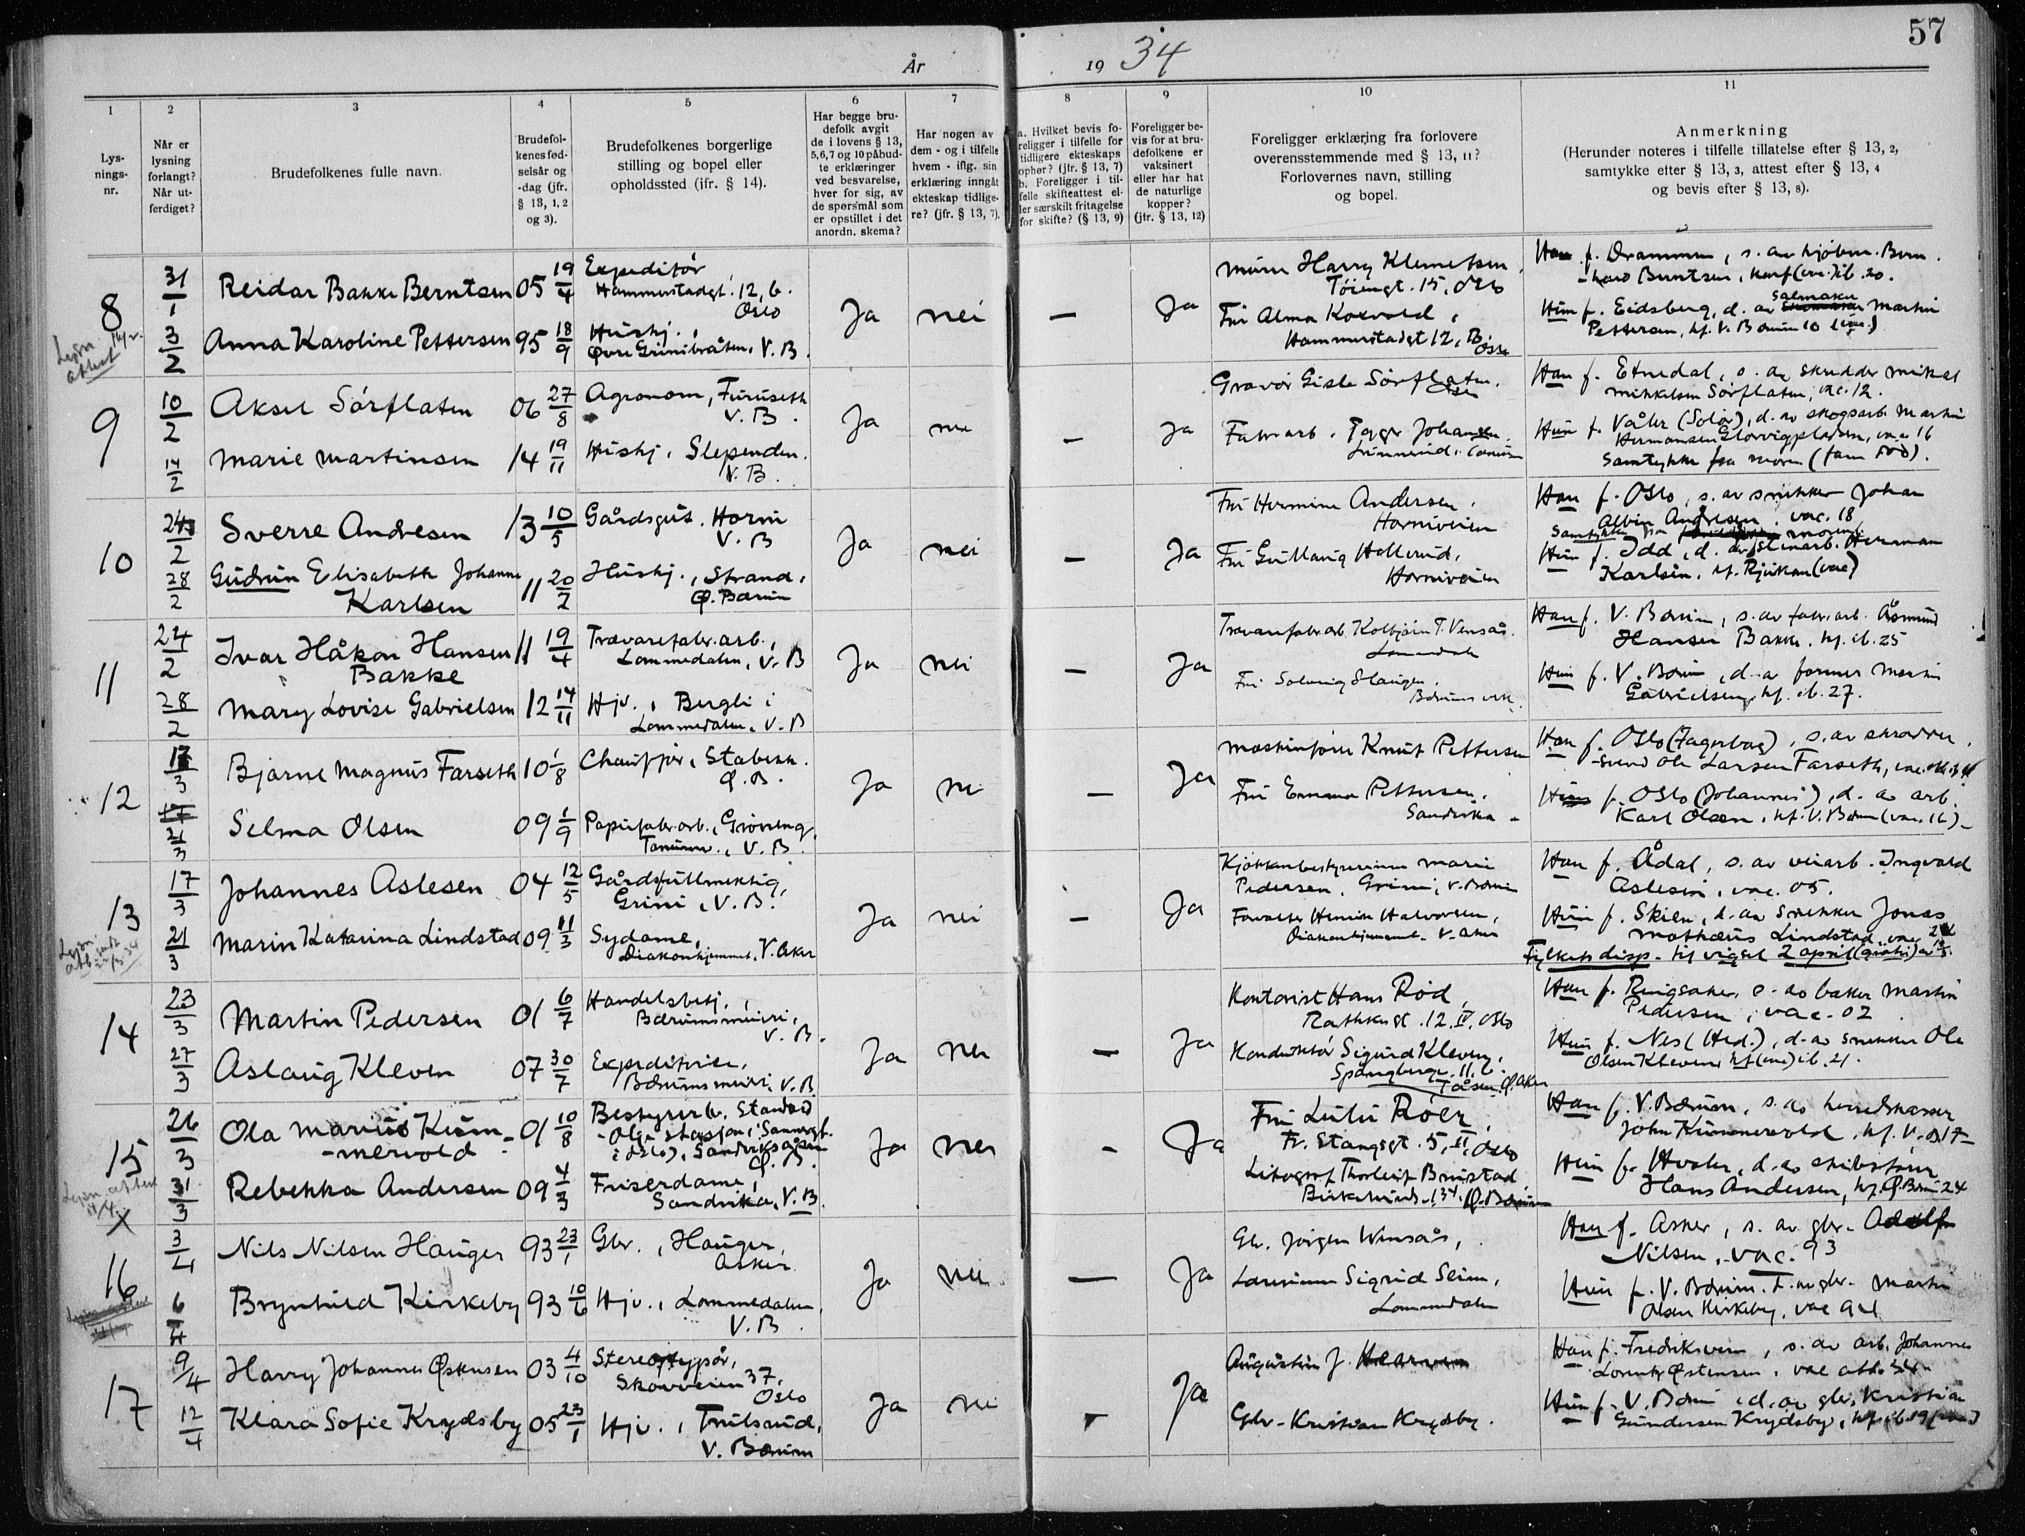 57
År 1934
1
2
3
4
5
6
7
8
9
10
11
Lys-
nings-
nr.
Når er
lysning
forlangt?
Når ut-
ferdiget?
Brudefolkenes fulle navn.
Brudefol-
kenes fød-
selsår og
-dag (jfr.
§ 13, 1, 2
og 3).
Brudefolkenes borgerlige
stilling og bopel eller
opholdssted (jfr. § 14).
Har begge bru-
defolk avgit
de i lovens § 13,
5, 6, 7 og 10 påbud-
te erklæringer
ved besvarelse,
hver for sig, av
de spørsmål som
er opstillet i det
anordn. skema?
Har nogen av
dem - og i tilfelle
hvem - iflg. sin
erklæring inngåt
ekteskap tidlige-
re? (jfr. § 13, 7).
a. Hvilket bevis fo-
religger i tilfelle for
tidligere ekteskaps
ophør? (jfr. § 13, 7)
b. Foreligger i til-
felle skifteattest el-
ler særskilt fritagelse
for skifte? (§ 13, 9)
Foreligger be-
vis for at bru-
defolkene er
vaksinert
eller har hat
de naturlige
kopper?
(jfr. § 13, 12)
Foreligger erklæring fra forlovere
overensstemmende med § 13, 11?
Forlovernes navn, stilling
og bopel.
Anmerkning
(Herunder noteres i tilfelle tillatelse efter § 13, 2,
samtykke efter § 13, 3, attest efter § 13, 4
og bevis efter § 13, 8).
8
31/1
Reidar Bakke Berntsen 05 19/4
Expeditør
Hammerstadgt. 12, b.
Oslo
Ja nei — Ja
Murer Harry Klemetsen,
Tøiengt. 15, Oslo
Han f. Drammen, s. av
3/2
Anna Karoline Pettersen 95 18/9
Hushj.,
Øvre Grinibråten, V. B.
Fru Alma Koxvold,
Hammerstadgt 12, B, Oslo
Hun f. Eidsberg, d. av Salmaker Martin
Pettersen, kf. V. Bærum 10 (vac.)
9
10/2
Aksel Sørflaten 06 27/8
Agronom, Furuseth
V. B.
Ja nei — Ja
Gravør Gisle Sørflaten,
Oslo
Han f. Etnedal, s. av skredder Mikal
Mikkelsen Sørflaten, vac. 12.
14/2
Marie Martinsen 14 19/11
Hushj, Slependen.
V. B.
Fabr.arb. Johansen
Hun f. Våler (Solør), d. av skogsarb. Martin
Hermansen vac 16
Samtykke fra moren (faren død).
10
24/2
Sverre Andresen 13 10/5
Gårdsgut. Horni
V. B
Ja nei — Ja
Fru Hermine Andersen,
Horniveien
Han f. Oslo, s. av snikker Johan
Albin Andresen. vac. 18
Samtykke fra moren
28/2
Gudrun Elisabeth Johanne
Karlsen 11 20/2
Hushj., Strand,
Ø. Bærum
Fru Gullaug Hollerud,
Horniveien
Hun f. Idd, d. av stenarb. Herman
Karlsen. kf. Rjukan (vac)
11
24/2
Ivar Håkon Hansen
Bakke 11 19/4
Trævarefabr.arb.,
Lommedalen, V. B
Ja nei — Ja
Trævarefabr.arb. Kolbjørn T. Vensås.
Lommedalen
Han f. V. Bærum, s. av fabr.arb. Åsmund
Hansen Bakke. kf. ib. 25
28/2
Mary Lovise Gabrielsen 12 14/11
Hjv., Bergli i
Lommedalen, V. B
Fru Solveig Hauger.
Bærums verk
Hun f. V. Bærum, d. av former Martin
Gabrielsen, kf. ib. 27.
12
Bjarne Magnus Farseth 10 1/8
Chauffør, Stabekk.
Ø. B.
Ja nei — Ja
Maskinfører Knut Pettersen
Han f. Oslo (Fagerborg), s. av skredder
Svend Ole Larsen Farseth, vac.
21/3
Selma Olsen 09 1/9
Papirfabr.arb., Grøneng,
Tanum, V. B.
Fru Emma Pettersen,
Sandvika
Hun f. Oslo (Johannes), d. av arb.
Karl Olsen, kf. V. Bærum (vac. 16)
13
17/3
Johannes Aslesen 04 12/5
Gårdsfullmektig,
Grini, V. B.
Ja nei — Ja
Kjøkkenbestyrerinne Marie
Pedersen, Grini, V. Bærum
Han f. Ådal, s. av veiarb. Ingvald
Aslesen, vac. 05.
21/3
Marin Katarina Lindstad 09 11/3
Sydame,
Diakonhjemmet, V. Aker
Forvalter Henrik Halvorsen,
Diakonhjemmet. V. Aker
Hun f. Skien, d. av snekker Jonas
Mathæus Lindstad. vac
Fylkets disp. til vigsel 2 april (gratis)
14
23/3
Martin Pedersen 01 6/7
Handelsbetj.,
Bærumsmeieri,
V. B.
Ja nei — Ja
Kontorist Hans Rød,
Rathkesgt. 12. IV, Oslo
Han f. Ringsaker, s. av baker Martin
Pedersen, vac. 02
27/3
Aslaug Kleven 07 30/7
Expeditrise,
Bærumsmeieri, V. B
Konduktør Sigurd Kleven,
Spångbergv. 11, b.
Tåsen, Ø. Aker
Hun f. Nes (Hed.), d. av snekker Ole
Olsen Kleven kf (vac) ib. 21.
15
26/3
Ola Marius Kum-
mervold 01 10/8
Ja nei - Ja
Fru Lulu Roer,
Fr. Stangsgt. 5, II, Oslo
Han f. V. Bærum, s. av
John Kummervold, kf. V. B 17
31/3
Rebekka Andersen 09 4/3
Friserdame,
Sandvika, V. B.
Litograf Thorleif Brustad,
Ø. Bærum
Hun f. Hvaler, d. av skibsfører
Hans Andersen, kf. Ø. Bærum 24
16
3/4
Nils Nilsen Hauger 93 23/1
Gbr., Hauger,
Asker
Ja nei — Ja
Gb. Jørgen Wensås,
Han f. Asker, s. av gbr. Adolf
Nilsen, vac. 93
6/4
Brynhild Kirkeby 93 10/6
Hjv., Lommedalen,
V. B.
Lærerinne Sigrid Seim,
Lommedalen
Hun f. V. Bærum. d. av gbr. Martin
Olsen Kirkeby, vac 94
17
9/4
Harry Johannes Østensen 03 4/10
Stereotypør,
Skovveien 37,
Oslo
Ja nei - Ja
Augustin J.
Han f. Fredriksvern, s. av arb. Johannes
Lorentz Østensen, vac att. 34
12/4
Klara Sofie Krydsby 05 23/1
Hjv., Trulsrud,
V. Bærum
Gbr. Kristian Krydsby.
Hun f. V. Bærum, d. av gbr. Kristian
Gundersen Krydsby, kf. ib. 19 (vac)